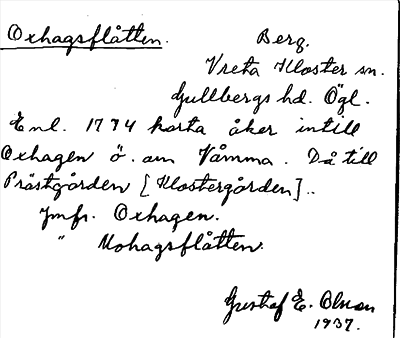 Oxhagsflåtten. Berg.
Vreta Kloster sn.
Gullbergs hd. Ögl.
Enl. 1774 karta åker intill
Oxhagen ö. om Våmma. Då till
Prästgården [Klostergården]..
Jmfr. Oxhagen.
" Mohagsflåtten.
Gustaf E. Olson
1937.